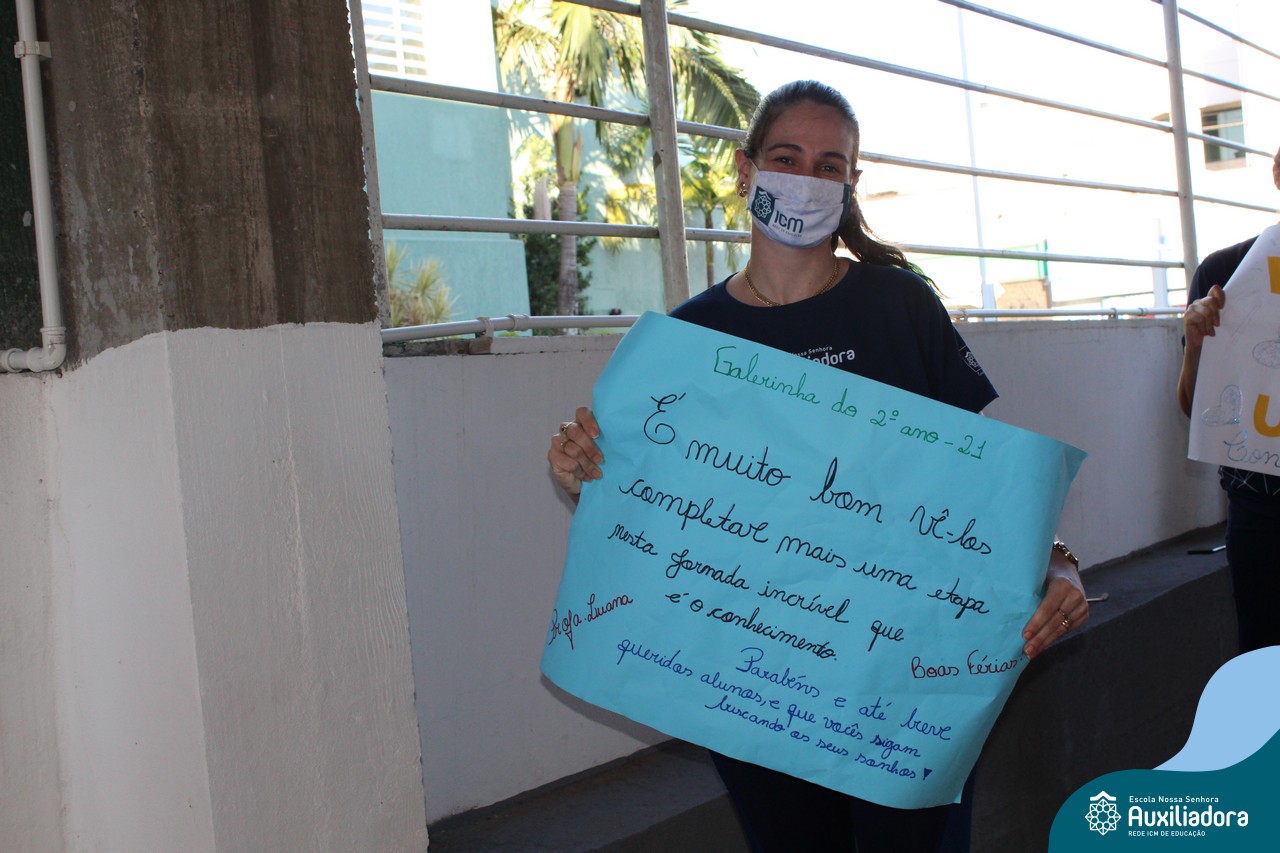 icm
Nossa Senhora
Galerinha do 2º ano - 21
É muito bom vê-los
completar mais uma etapa
nesta jornada incrível que
é o conhecimento.
Profa. Luana
Boas Férias!
Parabéns e até breve
queridos alunos, e que vocês sigam
buscando os seus sonhos!
Escola Nossa Senhora
Auxiliadora
REDE ICM DE EDUCAÇÃO